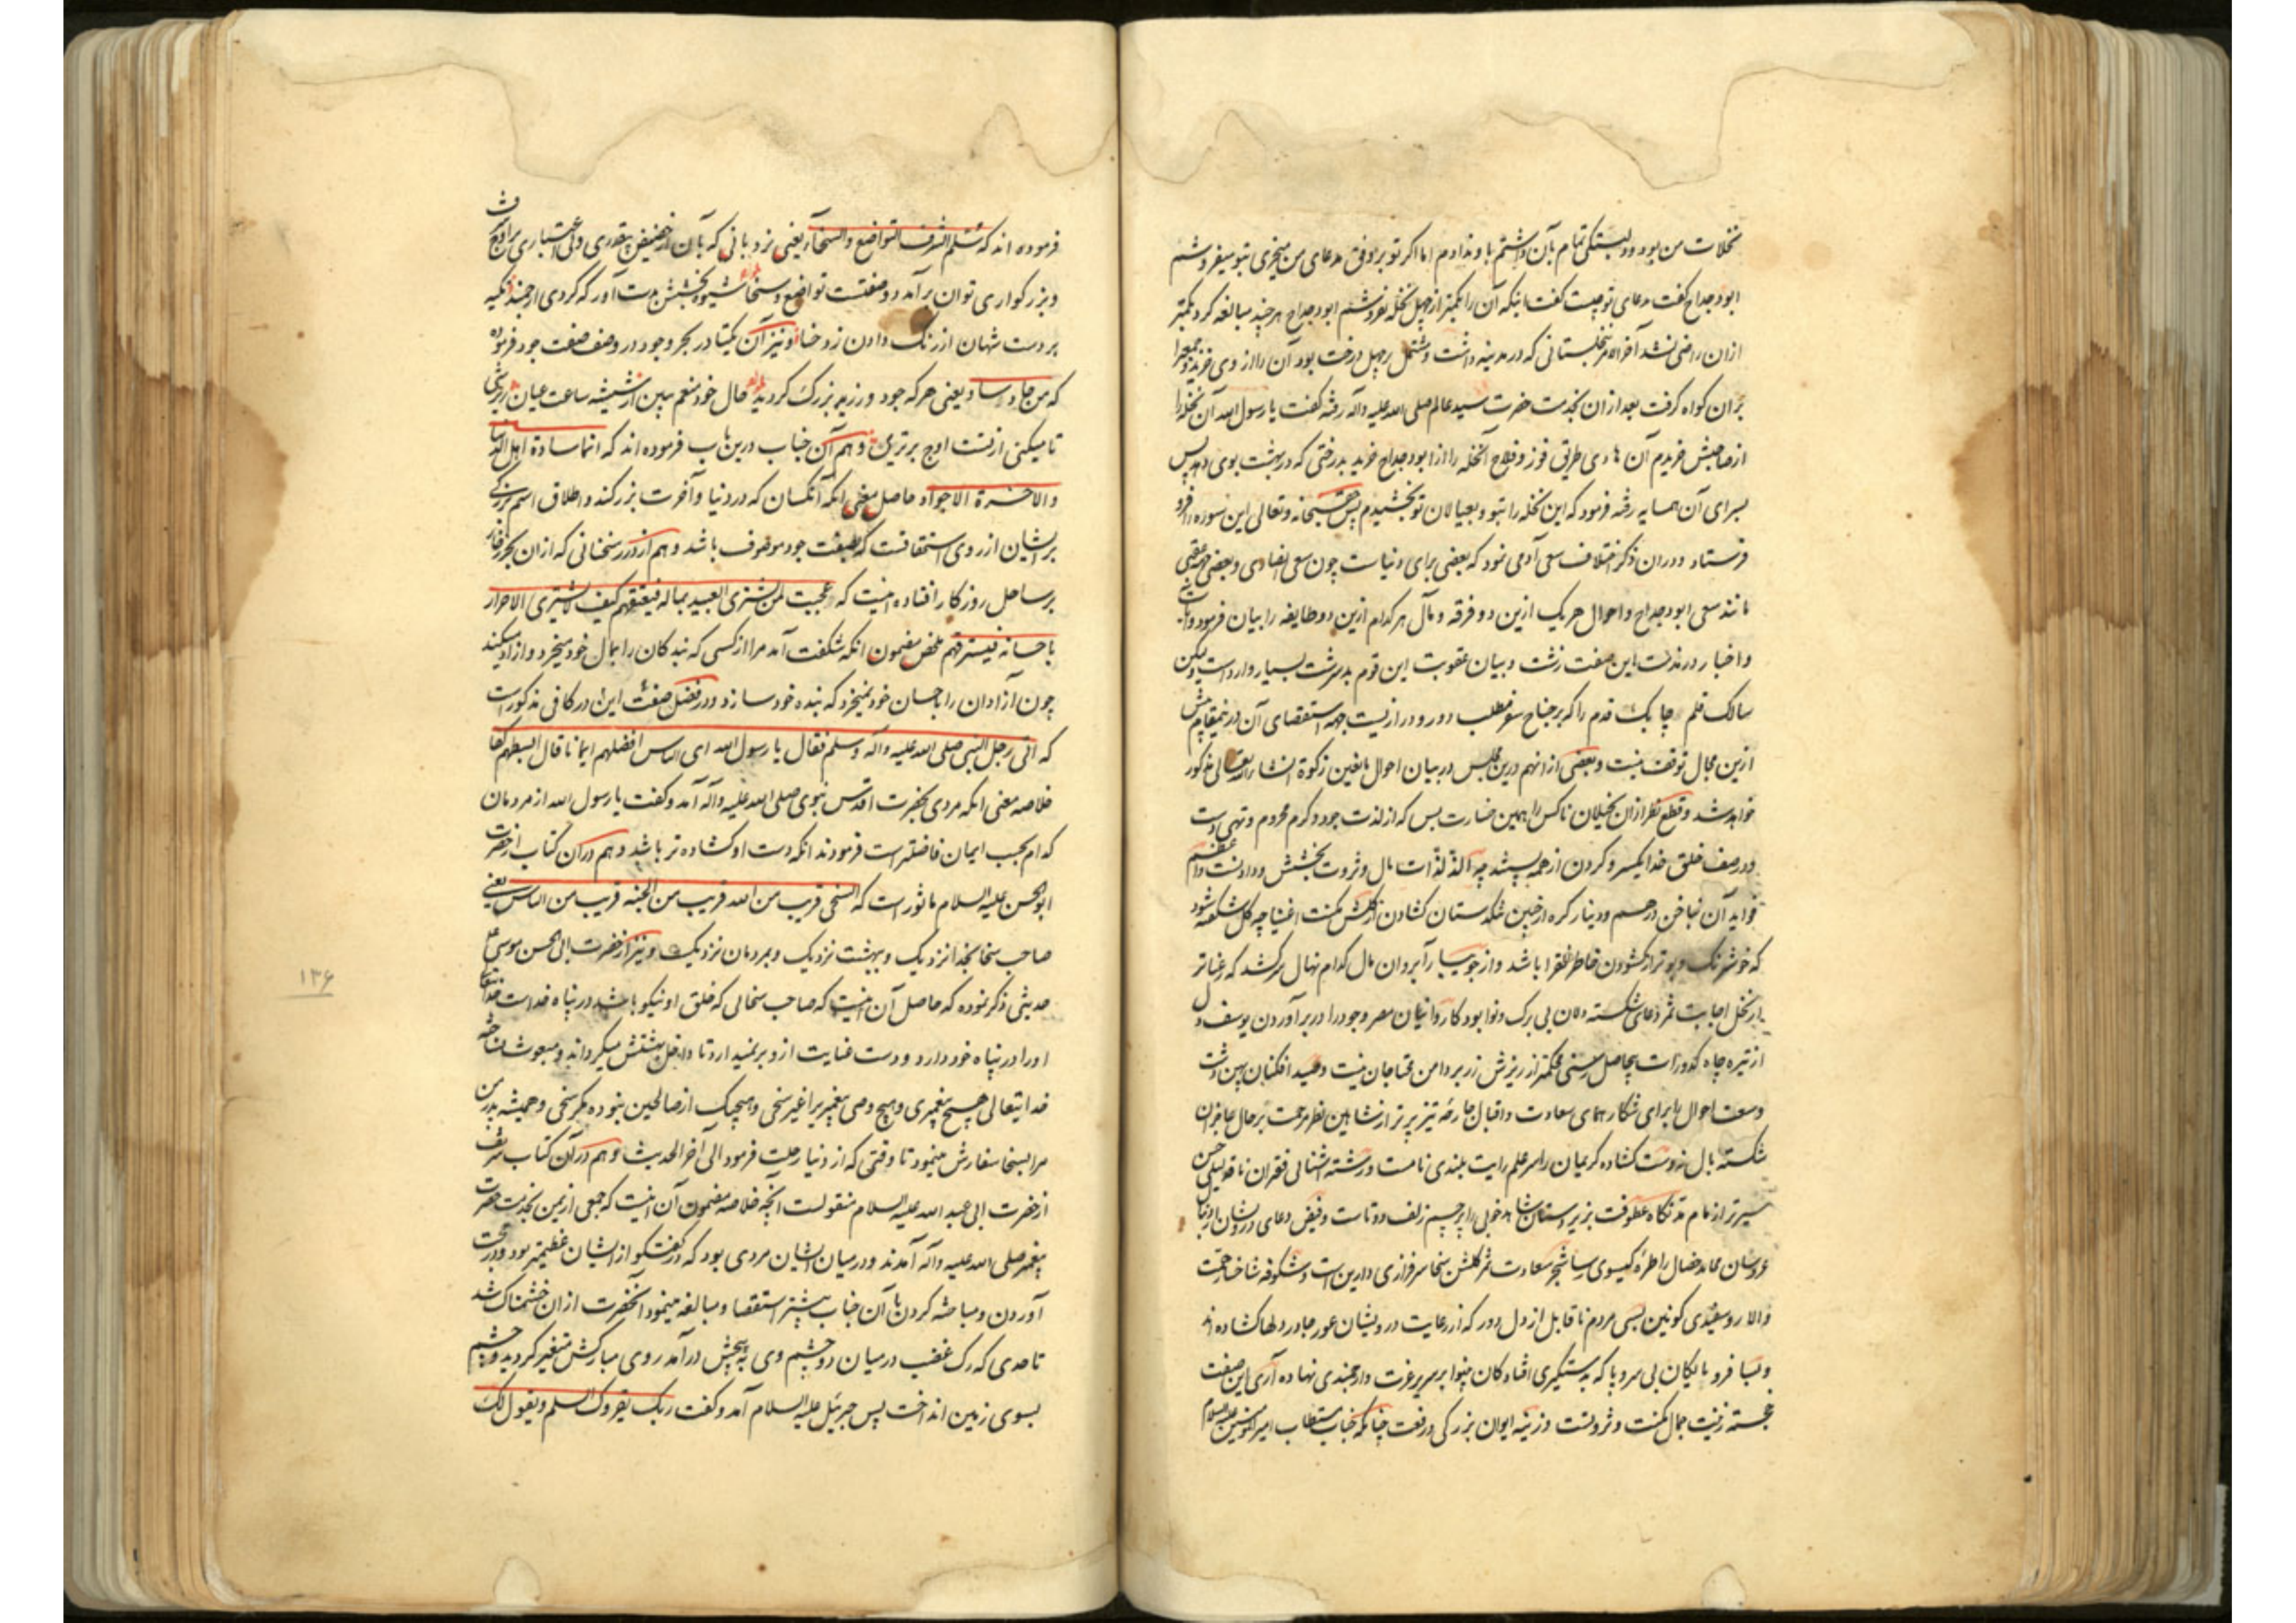 نخلات من بود و دلبستکی تمام بآن داشتم باو ندادم اما اکر تو بر وفق مدعای من میخری بتو میفروشم
ابودحداح کفت مدعای تو چیست کفت اینکه آن را کمتر از چهل نخله نفروشم ابودحداح هر چند مبالغه کرد بکمتر
ازان راضی نشد آخر الامر نخلستانی که در مدینه داشت و مشتمل بر چهل درخت بود آن را از وی خرید و جمعرا
بران کواه کرفت بعد ازان بخدمت حضرت سید عالم صلی الله علیه و آله رفته کفت یا رسول الله آن نخله را
از صاحبش خریدم آن هادی طریق فوز و فلاح آن نخله را از ابودحداح خرید بدرختی که در بهشت بوی دهد پس
بسرای آن همسایه رفته فرمود که این نخله را بتو و بعیالان تو بخشیدم پس حق سبحانه و تعالی این سوره را فرو
فرستاد و دران ذکر اختلاف سعی آدمی نمود که بعضی برای دنیاست چون سعی انصاری و بعضی جهة عقبی
مانند سعی ابودحداح و احوال هر یک ازین دو فرقه و مآل هر کدام ازین دو طایفه را بیان فرمود و آیات
و اخبار در مذمت این صفت زشت و بیان عقوبت این قوم بد سرشت بسیار وارد است و لیکن
سالک قلم چابک قدم را که بر جناح سفر مطلب دور و دراز یست جهة استقصای آن در خیمقام پیش
ازین مجال توقف نیست و بعضی از انهم درین مجلس در بیان احوال مانعین زکوة انشاء الله تعالی مذکور
خواهد شد و قطع نظر ازان بخیلان ناکس را همین خسارت بس که از لذت جود و کرم محروم و تهی دست
و در صف خلق خدا یکسر و کردن از همه پستند چه الذ لذات مال و ثروت بخشش و دادنست و اعظم
فواید آن بناخن درهم و دینار کره از جبین تنکدستان کشادن از کلشن مکنت اغنیا چه کل شکفته شود
که خوشرنک و بو تر از کشودن خاطر فقرا باشد و از جویبار آبروان مال کدام نهال سر کشد که رعناتر
از نخل اجابت ثمر دعای شکسته دلان بی برک و نوا بود کاروانیان مصر وجود را در بر آوردن یوسف دل
از تیره چاه کدورات بیحاصل رسنی محکمتر از ریزش زر بر دامن محتاجان نیست و صید افکنان پهن دشت
وسعت احوال را برای شکار همای سعادت و اقبال جارحه تیز پر تر از شاهین نظر مرحمت بر حال عاجزان
شکسته بال نه دست کشاده کریمان را سر علم رایت بلندی نامست و رشته آشنائی فقیران ناقه لیلی حسن
سیرتر از نام تد نکاه عطوفت بزیر دستان شاهد خوبی را پرچم زلف دوتاست و فیض دعای درویشان ارباب
عروسان محامد خصال را طره کیسوی رسا شجر سعادت ثمر کلشن سخا سرفرازی دارین است و شکوفه شاخسار همت
والا روسفیدی کونین بسی مردم ناقابل از دل دور که از رعایت درویشان عور جا در دلها کشاده اند
و بسا فرو مایکان بی سر و پا که بدستکیری افتادکان بینوا بر سریر عزت و ارجمندی نهاده آری این صفت
خجسته زینت جمال مکنت و ثروتست و زینه ایوان بزرکی و رفعت چنانکه جناب مستطاب امیرالمؤمنین علیه السلام
فرموده اند که سلم الشرف التواضع و السخاء یعنی نردبانی که بآن از حضیض بیقدری و بی اعتباری بر اوج شرف
و بزرکواری توان بر آمد دو صفتست تواضع و سخا شیوه بخشش بدست آور که کردی ارجمند تکیه
بر دست شهان از رنک دادن زد حنا و نیز آن یکتا در بحر وجود در وصف صفت جود فرموده
که من جاد ساد یعنی هر که جود ورزید بزرک کردید حال خود منعم ببین از شیشه ساعت عیان
تا میکنی از تست اوج برتری و هم آن جناب درین باب فرموده اند که انما سادة اهل الدنیا
و الاخرة الاجواد حاصل معنی انکه آنکسان که در دنیا و آخرت بزرکند و اطلاق اسم بزرکی
بر ایشان از روی استحقاقست که بصفت جود موصوف باشد و هم از درر سخنانی که ازان بحر زخار
بر ساحل روزکار افتاده اینست که عجبت لمن یشتری العبید بماله فیعتقهم کیف لا یشتری الاحرار
باحسانه فیسترقهم ملخص مضمون انکه شکفت آمد مرا از کسی که بندکان را بمال خود میخرد و ازاد میکند
چون آزادان را باحسان خود نمیخرد که بنده خود سازد و در فضل صفت این در کافی مذکور است
که اتی رجل النبی صلی الله علیه و آله و سلم فقال یا رسول الله ای الناس افضلهم ایمانا قال ابسطهم کفا
خلاصه معنی انکه مردی بحضرت اقدس نبوی صلی الله علیه و آله آمد و کفت یا رسول الله از مردمان
کدام بحسب ایمان فاضلتر است فرمودند انکه دست او کشاده تر باشد و هم دران کتاب از حضرت
ابوالحسن علیه السلام ماثور است که السخی قریب من الله قریب من الجنة قریب من الناس یعنی
صاحب سخا بخدا نزدیک و ببهشت نزدیک و بمردمان نزدیک و نیز از حضرت ابی الحسن موسی ع
حدیثی ذکر نموده که حاصل آن اینست که صاحب سخائی که خلق او نیکو باشد در پناه خداست خدایتعالی
او را در پناه خود دارد و دست عنایت از و بر نمیدارد تا داخل بهشتش میکرداند و مبعوث نساخته
خدایتعالی هیچ پیغمبری و هیچ وصی پیغمبر را غیر سخی و هیچیک از صالحین نبوده مکر سخی و همیشه پدر من
مرا بسخا سفارش مینمود تا وقتی که از دنیا رحلت فرمود الی آخر الحدیث و هم دران کتاب شریف
از حضرت ابی عبد الله علیه السلام منقولست انچه خلاصه مضمون آن اینست که جمعی از یمن بخدمت حضرت
پیغمبر صلی الله علیه و آله آمدند و در میان ایشان مردی بود که در کفتکو از ایشان عظیمتر بود و در حجت
آوردن و مباحثه کردن با آن جناب بیشتر استقصا و مبالغه مینمود آنحضرت ازان خشمناک شد
تا حدی که رک غضب در میان دو چشم وی به پیچش درآمد روی مبارکش متغیر کردید و چشم
بسوی زمین انداخت پس جبرئیل علیه السلام آمد و کفت ربک یقرؤک السلم و یقول لک
۱۳۶